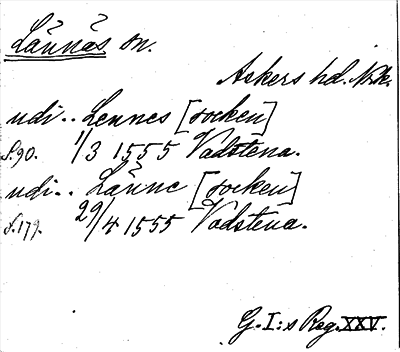 Lännäs sn.
Askers hd. Nrk.
udi.. Lennes [socken]
s. 90. 1/3 1555 Vadstena.
udi.. Länne [socken]
s. 179. 29/4 1555 Vadstena.
G. I:s Reg. XXV.